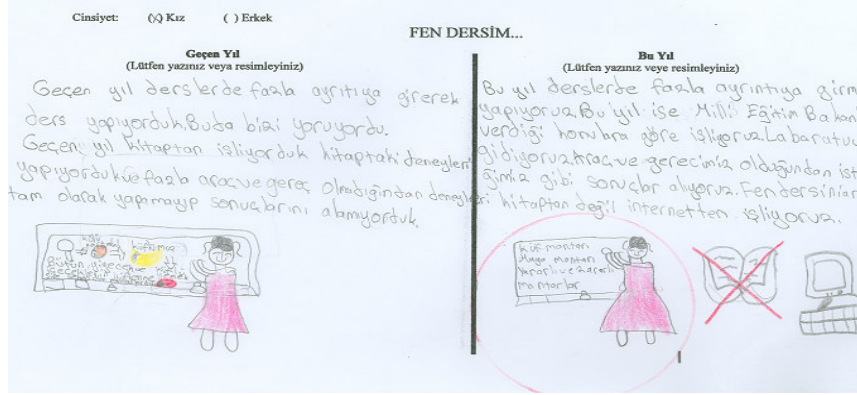 Cinsiyet: (X) Kız ( ) Erkek
FEN DERSİM...
Geçen Yıl
(Lütfen yazınız veya resimleyiniz)
Geçen yıl derslerde fazla ayrıtıya girerek
ders yapıyorduk.Buda bizi yoruyordu.
Geçen yıl kitaptan işliyorduk kitaptaki deneyleri
yapıyorduk ve fazla araç ve gereç olmadığından deneyleri
tam olarak yapamayıp sonuçlarını alamıyorduk.
Bu Yıl
(Lütfen yazınız veye resimleyiniz)
Bu yıl derslerde fazla ayrıntıya girm
yapıyoruz.Bu yıl ise Milli Eğitim Bakan
verdiği konulara göre işliyoruz.Labaratu
gidiyoruz.Araç ve gerecimiz olduğundan ist
ğimiz gibi sonuçlar alıyoruz.Fen dersini
kitaptan değil internetten işliyoruz.
Küf mantarı
Maya mantarı
Yararlı ve zararlı
mantarlar